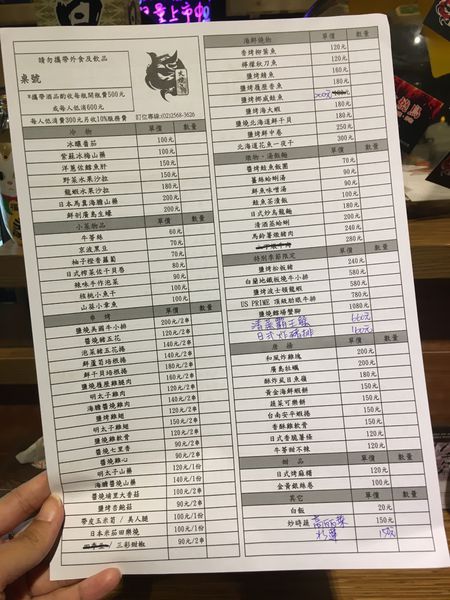 請勿攜帶外食及飲品
桌號
*攜帶酒品酌收每瓶開瓶費500元
或每人低消600元
每人低消費300元另收10%服務費
訂位專線:(02)2568-3626
冷 物 單價 數量
冰釀番茄 100元
紫蘇冰梅山藥 100元
洋蔥佐鯖魚肝 150元
野菜水果沙拉 150元
龍蝦水果沙拉 180元
日本馬糞海膽山藥 200元
鮮剖廣島生蠔 200元
小菜物品 單價 數量
牛蒡絲 60元
京波黑豆 70元
柚子橙香蘿蔔 70元
日式榨菜佐干貝卷 80元
辣味手作泡菜 90元
核桃小魚干 100元
山葵小章魚 100元
串 烤 單價 數量
鹽燒美國牛小排 200元/2串
醬燒鹹五花 120元/2串
泡菜鹹五花捲 140元/2串
鮮蘆筍培根捲 180元/2串
鮮干貝培根捲 180元/2串
鹽燒履歷雞腿肉 160元/2串
明太子雞肉 120元/2串
海膽醬燒雞肉 140元/2串
鹽烤雞翅 140元/2串
明太子雞翅 120元/2串
鹽燒雞軟骨 150元/2串
醬燒七里香 90元/2串
醬燒雞心 90元/2串
明太子山藥 120元/1份
海膽醬燒山藥 140元/1份
醬燒埔里大香菇 90元/2串
鹽烤杏鮑菇 90元/2串
帶皮玉米筍 / 美人腿 100元/1份
日本米茄田樂燒 100元/1份
四季豆 / 三彩甜椒 90元/2串
海鮮燒物 單價 數量
香烤柳葉魚 120元
檸檬秋刀魚 120元
鹽烤鯖魚 160元
鹽烤履歷香魚 180元
鹽烤挪威鮭魚 200元
鹽烤海大蝦 180元
鹽燒北海道鮮干貝 180元
鹽烤鮮中卷 200元
北海道花魚一夜干 300元
燉物.湯飯麵 單價 數量
醬烤鮭魚飯團 70元
薑絲蛤蜊湯 90元
鮮魚味噌湯 100元
鮭魚茶漬飯 100元
日式炒烏龍麵 150元
清酒蒸蛤蜊 200元
馬鈴薯燉豬肉 240元
280元
特別季節限定 單價 數量
鹽烤松板豬 240元
白蘭地鐵板燒牛小排 580元
鹽烤波士頓龍蝦 680元
US PRIME 頂級肋眼牛排 780元
鹽燒鱈場蟹腳 1080元
清蒸霸王蟹 660元
日式炸豬排 160元
唐 揚 單價 數量
和風炸雞塊 200元
廣島牡蠣 200元
酥炸鳳目魚嶺 180元
黃金海鮮蝦餅 150元
蔬菜可樂餅 150元
台南安平蝦捲 150元
香酥雞軟骨 150元
日式香脆薯條 120元
牛蒡甜不辣 120元
甜 品 單價 數量
日式烤麻糬 120元
金黃銀絲卷 100元
其它 單價 數量
白飯 20元
炒時蔬 高麗菜 150元
150元